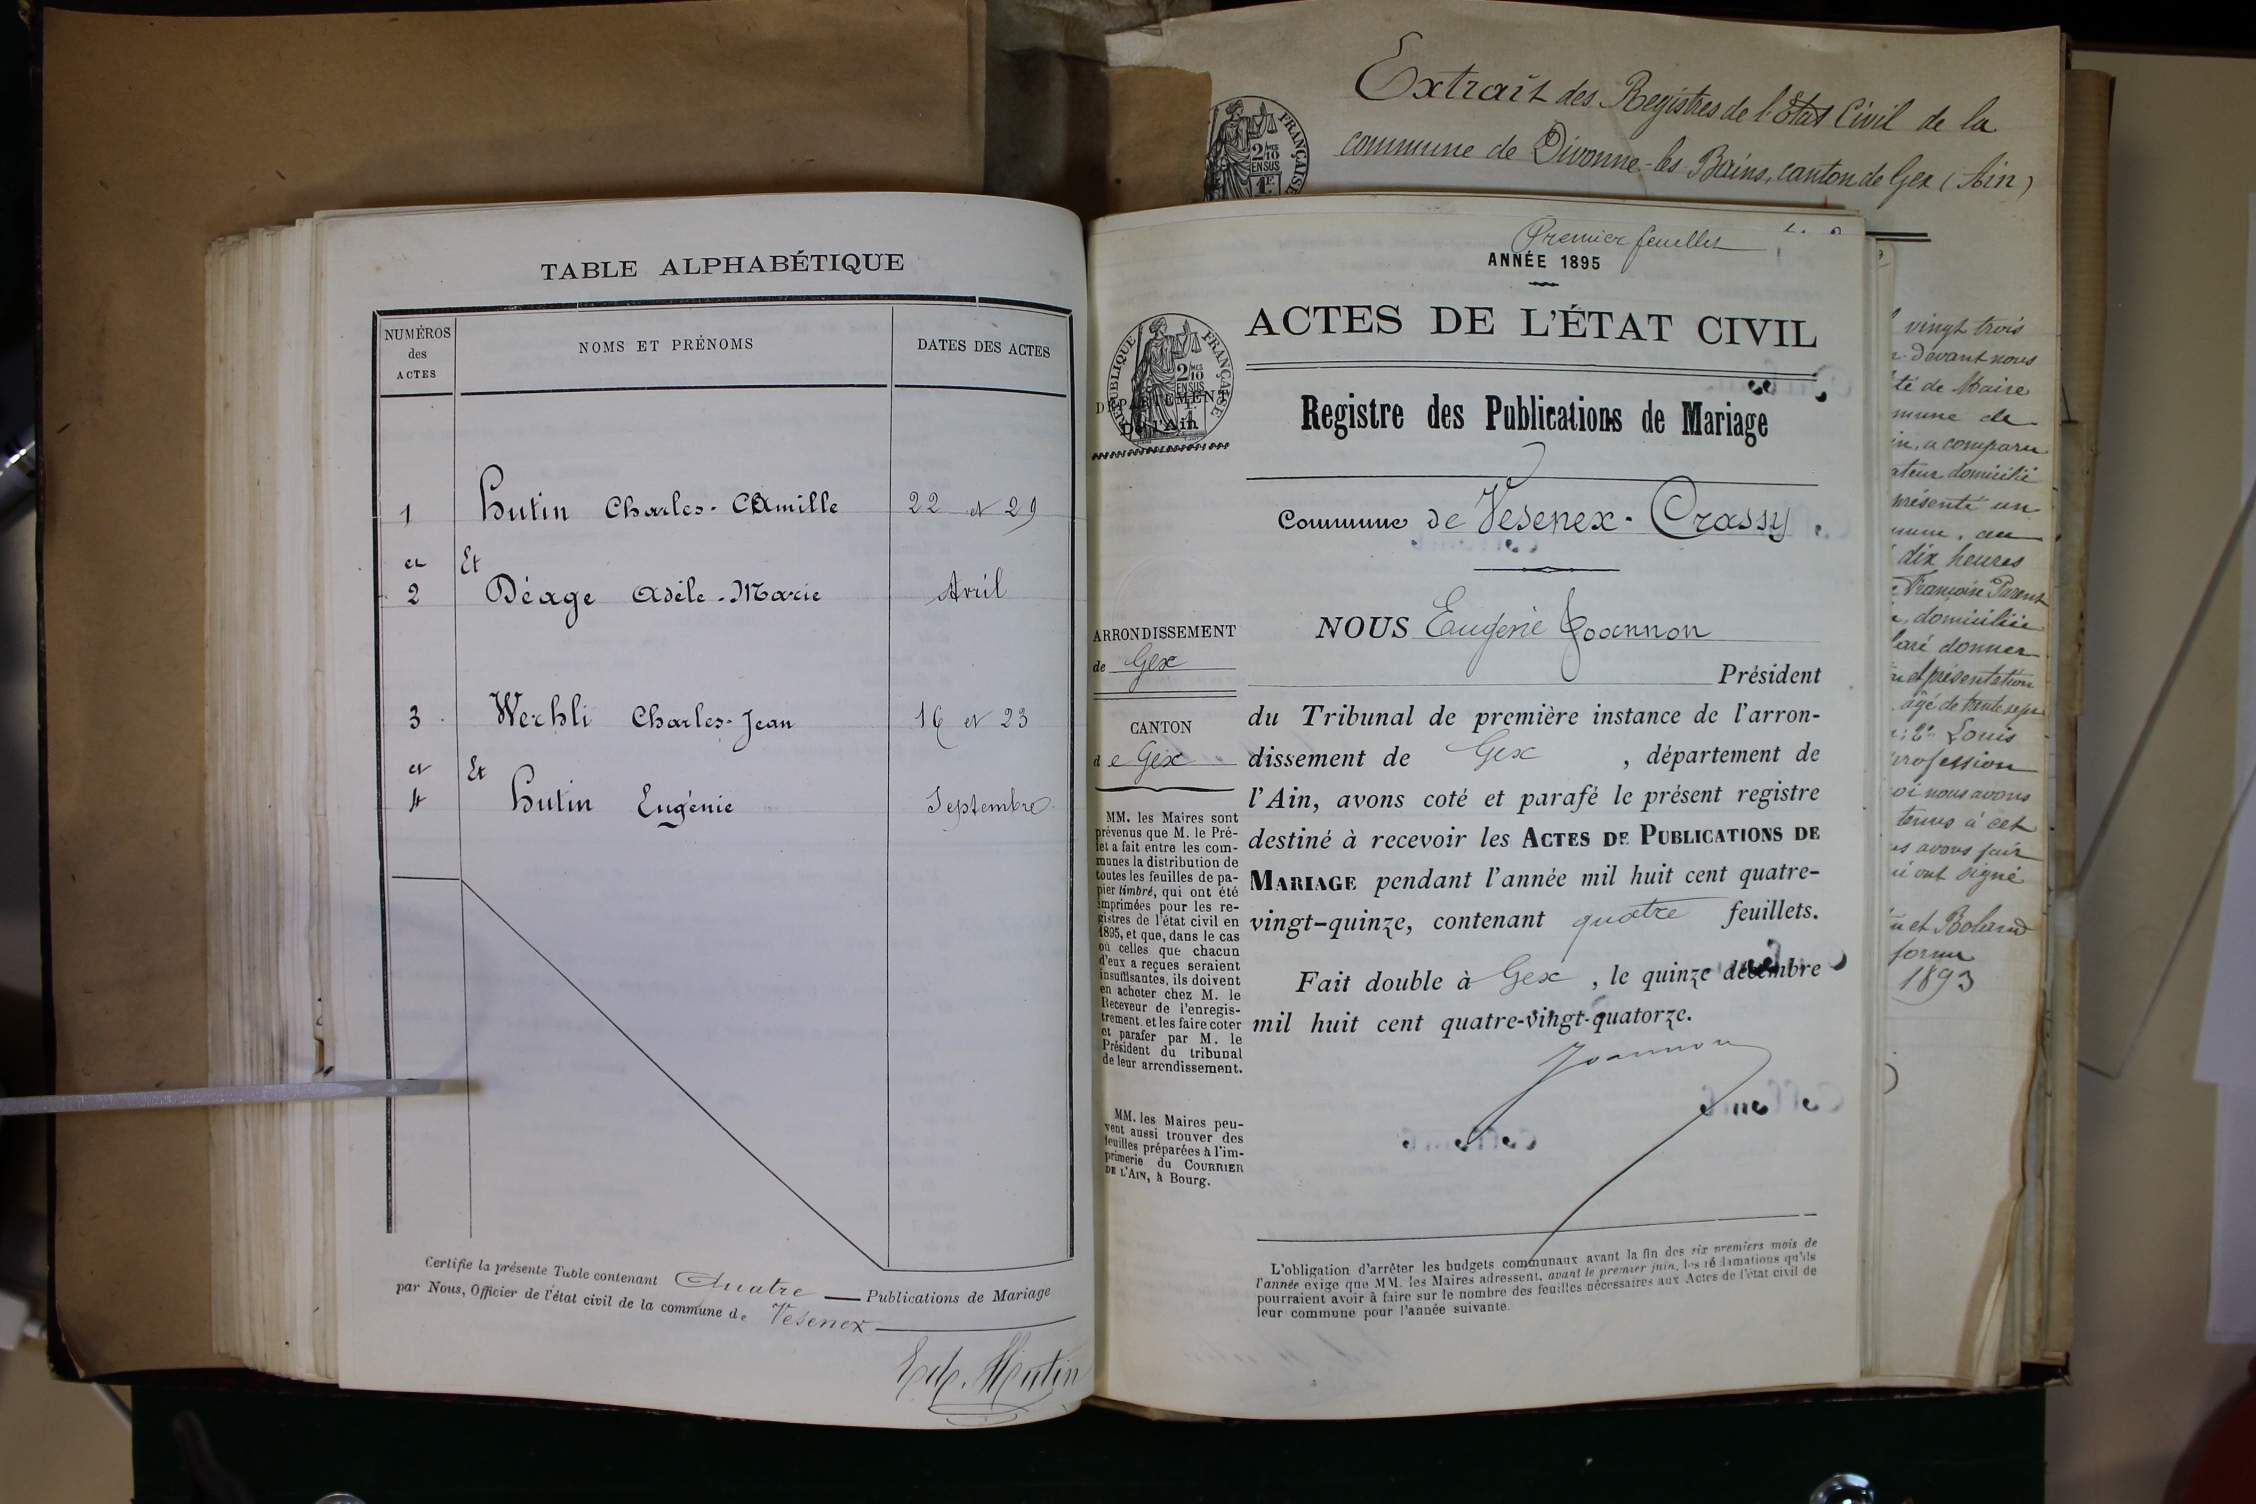 TABLE ALPHABÉTIQUE
NUMÉROS
des
ACTES
NOMS ET PRÉNOMS
DATES DES ACTES
1
Hutin Charles-Camille
22 et 29
et
Et
2
Déage Adèle-Marie
Avril
3
Werhli Charles-Jean
16 et 23
et
Et
4
Hutin Eugénie
Septembre
Certifie la présente Table contenant Quatre Publications de Mariage
par Nous, Officier de l'état civil de la commune de Vesenex
Hutin
Extrait des Registres de l'Etat Civil de la
commune de Divonne-les-Bains, canton de Gex (Ain)
FRANÇAISE
2/10
EN SUS
Premier feuillet
ANNÉE 1895
ACTES DE L'ÉTAT CIVIL
RÉPUBLIQUE FRANÇAISE
2/10
EN SUS
DÉPARTEMENT
De l'Ain
Registre des Publications de Mariage
Commune de Vesenex-Crassy
NOUS Eugène Joannon
Président
du Tribunal de première instance de l'arron-
dissement de Gex, département de
l'Ain, avons coté et parafé le présent registre
destiné à recevoir les ACTES DE PUBLICATIONS DE
MARIAGE pendant l'année mil huit cent quatre-
vingt-quinze, contenant quatre feuillets.
Fait double à Gex, le quinze décembre
mil huit cent quatre-vingt-quatorze.
Joannon
ARRONDISSEMENT
de Gex
CANTON
de Gex
MM. les Maires sont
prévenus que M. le Pré-
fet a fait entre les com-
munes la distribution de
toutes les feuilles de pa-
pier timbré, qui ont été
imprimées pour les re-
gistres de l'état civil en
1895, et que, dans le cas
où celles que chacun
d'eux a reçues seraient
insuffisantes, ils doivent
en acheter chez M. le
Receveur de l'enregis-
trement et les faire coter
et parafer par M. le
Président du tribunal
de leur arrondissement.
MM. les Maires peu-
vent aussi trouver des
feuilles préparées à l'im-
primerie du COURRIER
DE L'AIN, à Bourg.
L'obligation d'arrêter les budgets communaux avant la fin des six premiers mois de
l'année exige que MM. les Maires adressent, avant le premier juin, les réclamations qu'ils
pourraient avoir à faire sur le nombre des feuilles nécessaires aux Actes de l'état civil de
leur commune pour l'année suivante.
vingt trois
devant nous
té de Maire
mune de
in, a comparu
ateur domicilié
présenté un
dix heures
Françoise Parent
domiciliée
laré donner
et présentation
âgé de trente sept
2° Louis
profession
oi nous avons
tenus à cet
avons fait
ont signé
et Boland
forme
1893